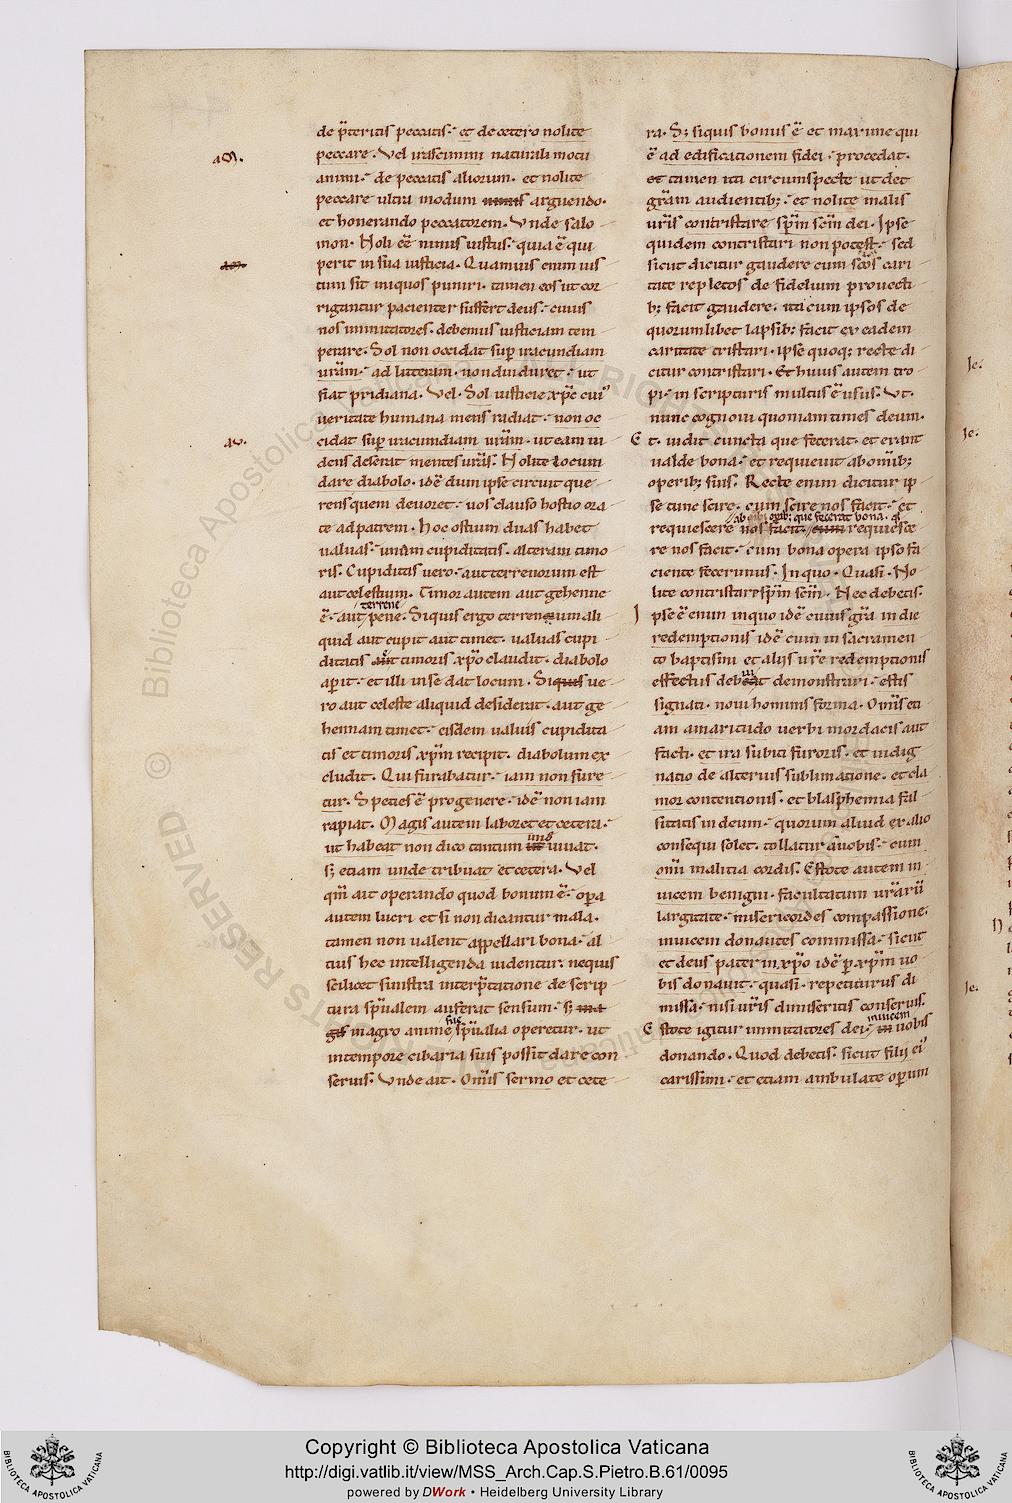 de p̄teritis peccatis. et de cetero nolite
peccare. Vel irascimini naturali motu
animi. de peccatis aliorum. et nolite
peccare ultra modum arguendo.
et honerando peccatorem. Vnde salo
mon. Noli eē nimis iustus. quia ē qui
perit in sua iusticia. Quamuis enim ius
tum sit iniquos puniri. tamen eos ut cor
rigantur pacienter suffert deus. cuius
nos immitatores. debemus iusticiam tem
perare. Sol non occidat sup̄ iracundiam
ur̄am. ad litteram. non diu duret. ut
fiat pridiana. Vel. Sol iusticie xp̄c cui'
ueritate humana mens radiat. non oc
cidat sup̄ iracundiam ur̄am. ut eam ui
dens deserat mentes ur̄as. Nolite locum
dare diabolo. idē dum ipse circuit que
rens quem deuoret. uos clauso hostio ora
te ad patrem. Hoc ostium duas habet
ualuas. unam cupiditatis. alteram timo
ris. Cupiditas uero. aut terrenorum est
aut celestium. Timor autem aut gehenne
ē. aut terrene pene. Siquis ergo terrenum ali
quid aut cupit aut timet. ualuas cupi
ditatis aut timoris xp̄o claudit. diabolo
ap̄it. et illi in se dat locum. Si ue
ro aut celeste aliquid desiderat. aut ge
hennam timet. eisdem ualuis cupidita
tis et timoris xp̄m recipit. diabolum ex
cludit. Qui furabatur. iam non fure
tur. Species ē pro genere. idē non iam
rapiat. Magis autem laboret et cetera.
ut habeat non dico tantum unde uiuat.
s; etiam unde tribuat et cetera. Vel
qm̄ ait operando quod bonum ē. op̄a
autem lucri et si non dicantur mala.
tamen non ualent appellari bona. al
tius hec intelligenda uidentur. nequis
scilicet sinistra interp̄tatione de scrip
tura sp̄ualem auferat sensum. s; ma
gis in agro anime sue sp̄ualia operetur. ut
in tempore cibaria suis possit dare con
seruis. Vnde ait. Om̄is sermo et cete
ra. S; siquis bonus ē et maxime qui
ē ad edificationem fidei. procedat.
et tamen ita circumspecte ut det
gr̄am audientib;. et nolite malis
ur̄is contristare sp̄m sc̄m dei. Ipse
quidem contristari non potest. sed
sicut dicitur gaudere cum sc̄os cari
tate repletos de fidelium prouecti
b; facit gaudere. ita cum ipsos de
quorumlibet lapsib; facit ex eadem
caritate tristari. ipse quoq; recte di
citur contristari. Et huius autem tro
pi. in scripturis multus ē usus. Vt.
nunc cognoui quoniam times deum.
Et. uidit cuncta que fecerat. et erant
ualde bona. et requieuit ab om̄ib;
operib; suis. Recte enim dicitur ip
se tunc scire. cum scire nos facit. et
ab om̄ib; op̄ib; que fecerat bona. q̄
requiescere nos facit. cum requiesce
re nos facit. cum bona opera ipso fa
ciente fecerimus. In quo. Quasi. No
lite contristare sp̄m sc̄m. Nec debetis.
Ipse ē enim in quo idē cuius gr̄a in die
redemptionis idē cum in sacramen
to baptismi et alijs ur̄e redemptionis
effectus debuit demonstrari. estis
signati. noui hominis forma. Om̄is eti
am amaritudo uerbi mordacis aut
facti. et ira subiti furoris. et indig
natio de alterius sublimatione. et cla
mor contentionis. et blasphemia fal
sitatis in deum. quorum aliud ex alio
consequi solet. tollatur a uobis. cum
om̄i malitia cordis. Estote autem in
uicem benigni. facultatum ur̄arū
largitate. misericordes compassione.
inuicem donantes commissa. sicut
et deus pater in xp̄o idē p̄ xp̄m uo
bis donauit. quasi. repetiturus di
missa. nisi ur̄is dimiseritis conseruis.
Estote igitur immitatores dei. inuicem uobis
donando. Quod debetis. sicut filij ei'
carissimi. et etiam ambulate op̄um
Copyright © Biblioteca Apostolica Vaticana
http://digi.vatlib.it/view/MSS_Arch.Cap.S.Pietro.B.61/0095
powered by DWork • Heidelberg University Library